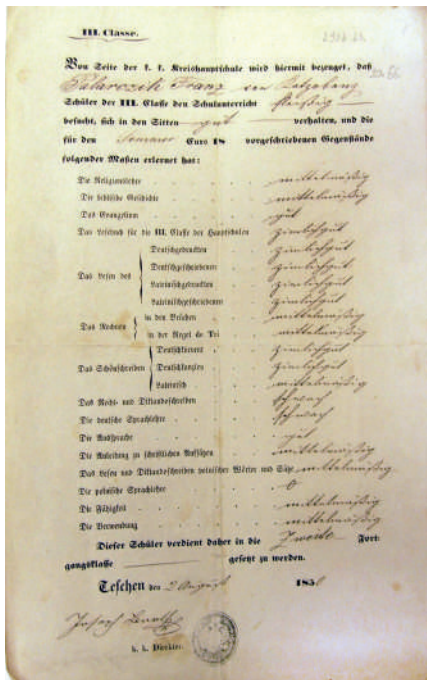 III. Classe.
Von Seite der k. k. Kreishauptschule wird hiermit bezeuget, daß
Franz von
Schüler der III. Classe den Schulunterricht fleißig
besucht, sich in den Sitten gut verhalten, und die
für den Sommer Curs 18 vorgeschriebenen Gegenstände
folgender Maßen erlernet hat:
Die Religionslehre mittelmäßig
Die biblische Geschichte mittelmäßig
Das Evangelium gut
Das Lesebuch für die III. Classe der Hauptschulen ziemlichgut
Das Lesen des
Deutschgedruckten ziemlichgut
Deutschgeschriebenen ziemlichgut
Lateinischgedruckten ziemlichgut
Lateinischgeschriebenen ziemlichgut
Das Rechnen
in den Brüchen mittelmäßig
in der Regel de Tri mittelmäßig
Das Schönschreiben
Deutschkurrent ziemlichgut
Deutschkanzlei ziemlichgut
Lateinisch mittelmäßig
Das Recht- und Diktandoschreiben schwach
Die deutsche Sprachlehre schwach
Die Aussprache gut
Die Anleitung zu schriftlichen Aufsätzen mittelmäßig
Das Lesen und Diktandoschreiben polnischer Wörter und Sätze mittelmäßig
Die polnische Sprachlehre 0
Die Fähigkeit mittelmäßig
Die Verwendung mittelmäßig
Dieser Schüler verdient daher in die Zweite Fort-
gangsklasse gesetzt zu werden.
Teschen den 2 August 185
Joseph
k. k. Direktor.